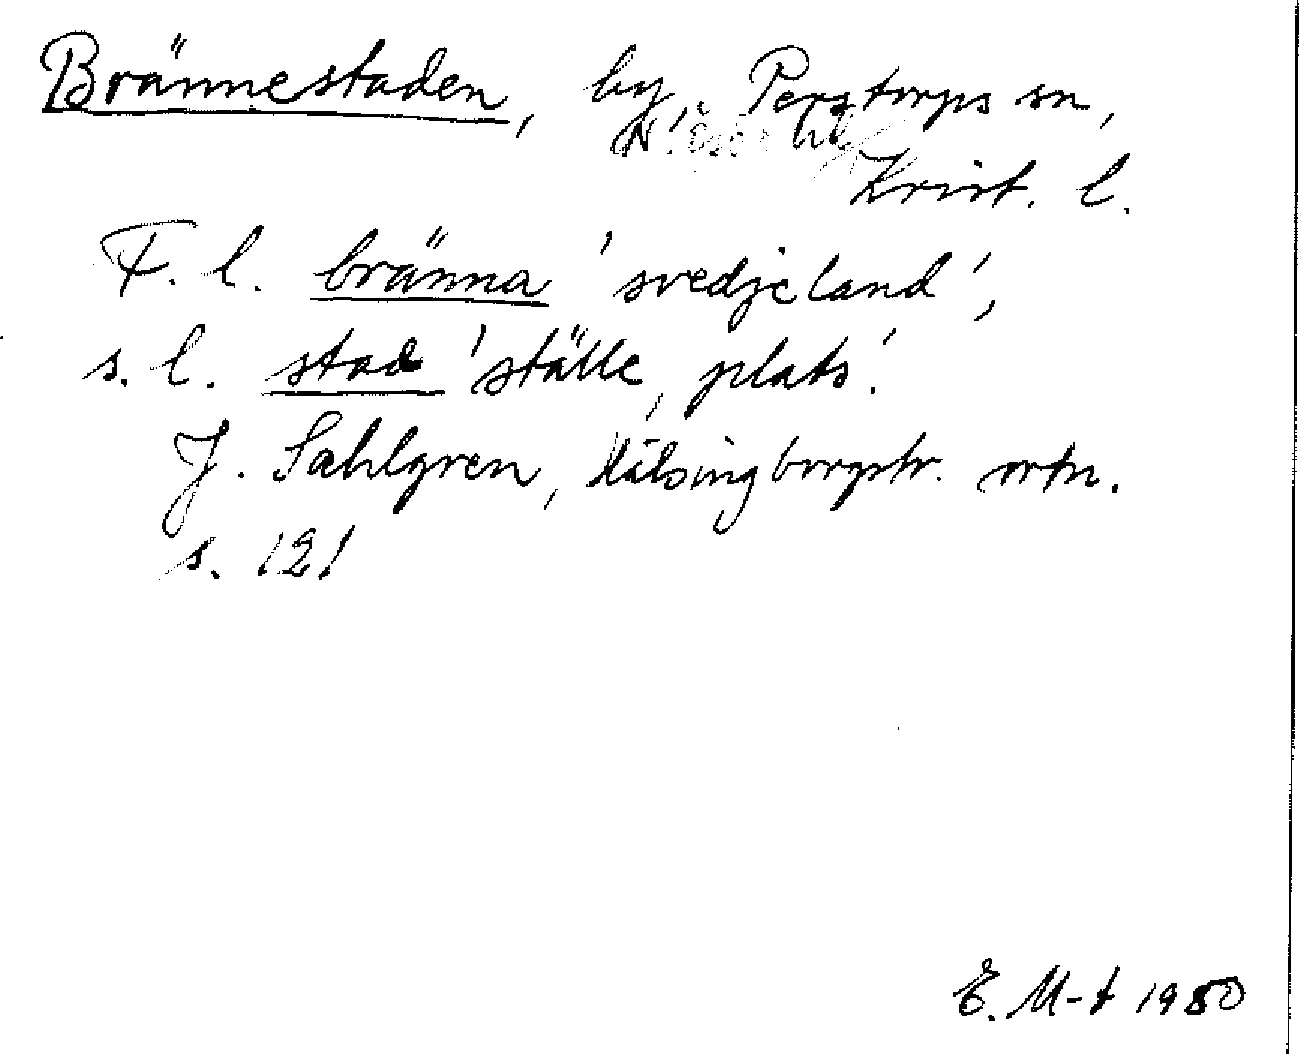 Brännestaden, by, Perstorps sn,
N. Åsbo hd
Krist. l.
F. l. bränna 'svedjeland',
s. l. stad 'ställe, plats'.
J. Sahlgren, Hälsingborgstr. ortn.
s. 121
E. M-t 1950